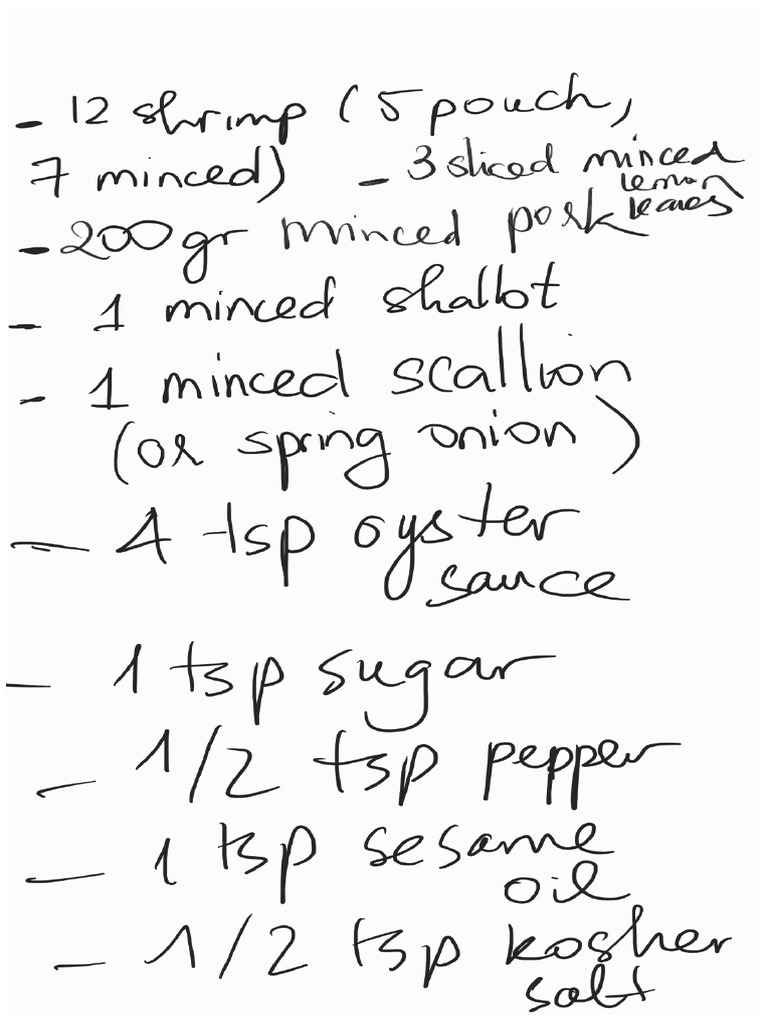 - 12 shrimp (5 pouch,
7 minced)
- 3 sliced minced
lemon
leaves
- 200 gr minced pork
- 1 minced shallot
- 1 minced scallion
(or spring onion)
- 4 tsp oyster
sauce
- 1 tsp sugar
- 1/2 tsp pepper
- 1 tsp sesame
oil
- 1/2 tsp kosher
salt